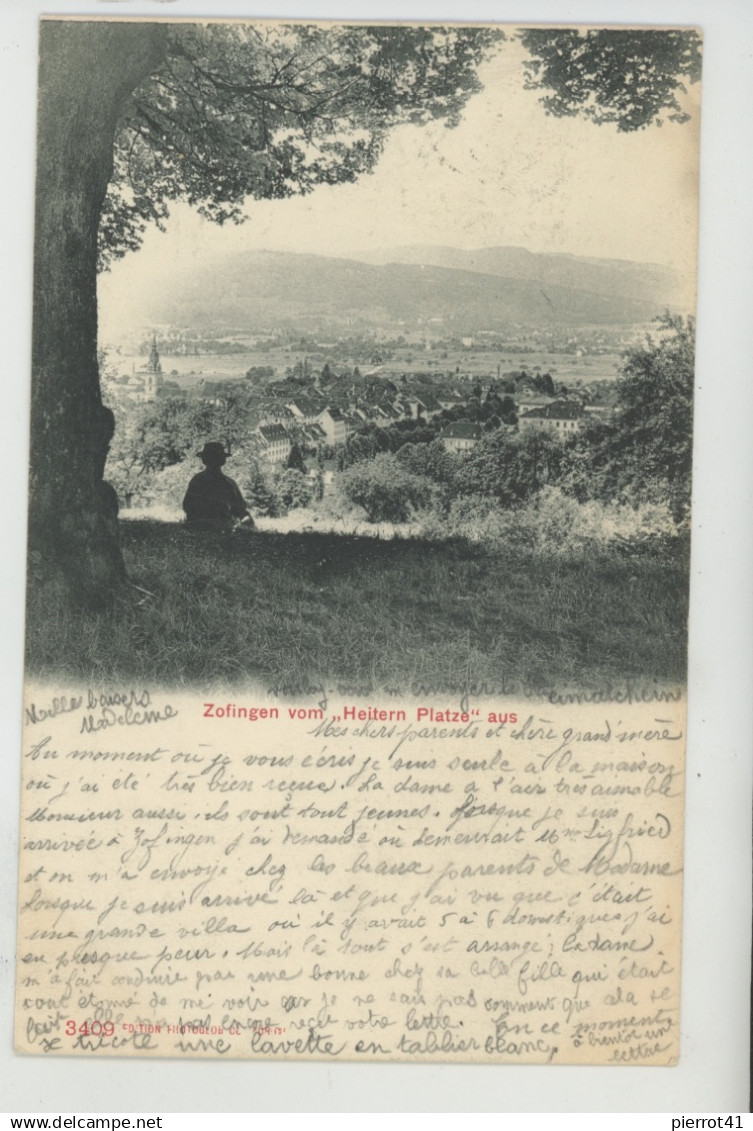 Mille baisers
Madeleine
Zofingen vom „Heitern Platze" aus
Mes chers parents et chère grand'mère
Au moment où je vous écris je suis seule à la maison
où j'ai été très bien reçue. La dame a l'air très aimable
Monsieur aussi, ils sont tout jeunes. Lorsque je suis
arrivée à Zofingen j'ai demandé où demeurait Mme Sigfried
et on m'a envoyé chez les beaux parents de Madame
Lorsque je suis arrivé là et que j'ai vu que c'était
une grande villa où il y avait 5 à 6 domestiques j'ai
eu presque peur. Mais là tout s'est arrangé; la dame
m'a fait conduire par une bonne chez sa belle fille qui était
tout étonné de me voir car je ne sais pas comment que ala se
fait elle n'a pas encore reçu votre lettre. En ce moment
je tricote une lavette en tablier blanc,
à bientôt une
lettre
3409 EDITION PHOTOGLOB CO.
pierrot41